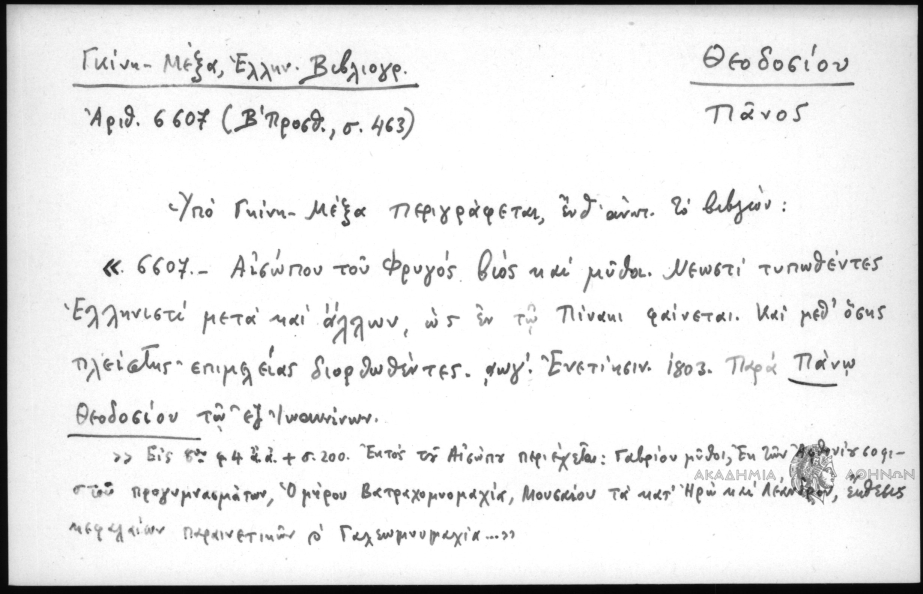 Γκίνη - Μέξα, Ἑλλην. Βιβλιογρ.
Θεοδοσίου
Ἀριθ. 6607 (Β' Προσθ., σ. 463)
Πᾶνος
Ὑπό Γκίνη - Μέξα περιγράφεται, ἔνθ' ἀνωτ. τό βιβλίον:
«6607.- Αἰσώπου τοῦ Φρυγός βίος καί μῦθοι. Νεωστί τυπωθέντες
Ἑλληνιστί μετά καί ἄλλων, ὡς ἐν τῷ Πίνακι φαίνεται. Καί μεθ' ὅσης
πλείστης ἐπιμελείας διορθωθέντες. ͵αωγ'. Ἐνετίησιν. 1803. Παρά Πάνῳ
Θεοδοσίου τῷ ἐξ Ἰωαννίνων.
» Εἰς 8ον 4 ἄ.ἀ. + σ. 200. Ἐκτός τοῦ Αἰσώπου περιέχεται: Γαβρίου μῦθοι, Ἐκ τῶν Ἀφθονίου σοφι-
στοῦ προγυμνασμάτων, Ὁμήρου Βατραχομυομαχία, Μουσαίου τά κατ' Ἡρώ καί Λέανδρον, ἔκθεσις
κεφαλαίων παραινετικῶν Γαλεωμυομαχία...»
ΑΚΑΔΗΜΙΑ ΑΘΗΝΩΝ